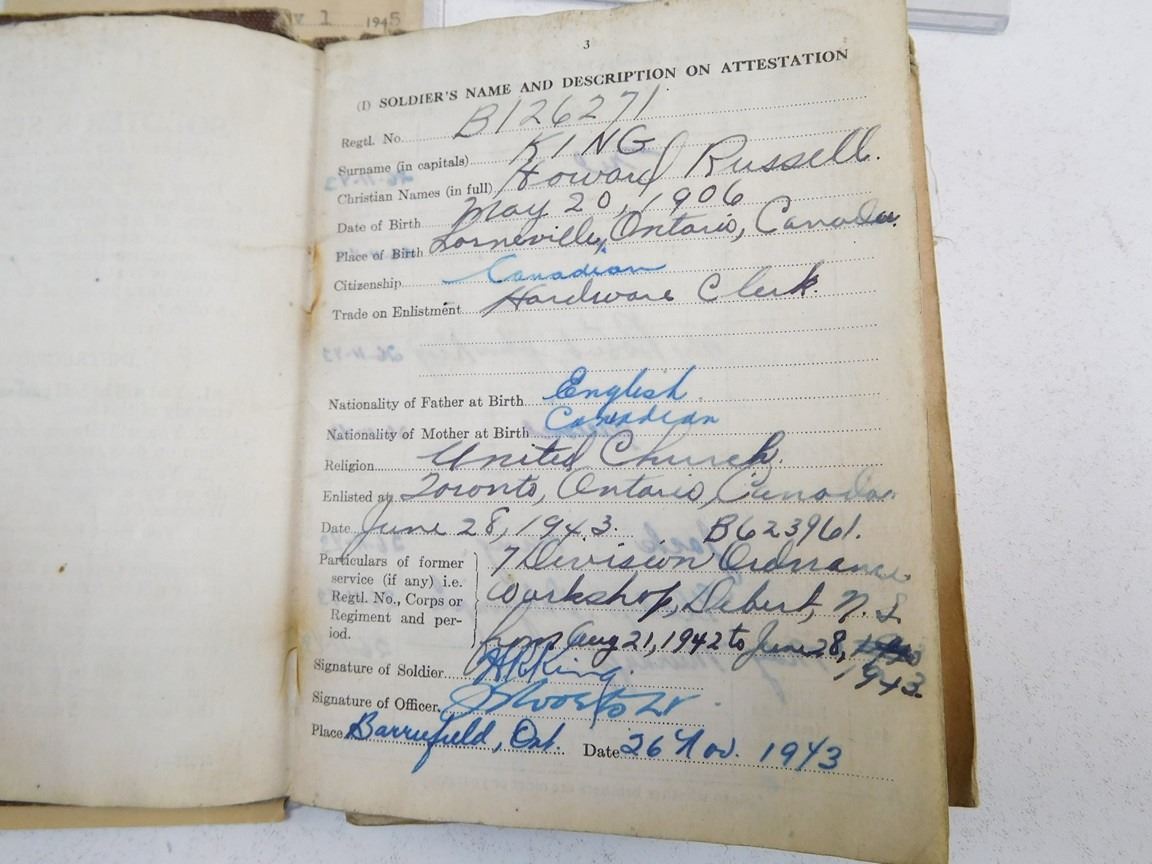 v 1 1945
3
(1) SOLDIER'S NAME AND DESCRIPTION ON ATTESTATION
Regtl. No. B126271
Surname (in capitals) KING
Christian Names (in full) Howard Russell.
Date of Birth May 20, 1906
Place of Birth Lorneville, Ontario, Canada.
Citizenship Canadian
Trade on Enlistment Hardware Clerk.
Nationality of Father at Birth English
Nationality of Mother at Birth Canadian
Religion United Church.
Enlisted at Toronto, Ontario, Canada.
Date June 28, 1943. B623961.
Particulars of former service (if any) i.e. Regtl. No., Corps or Regiment and period.
7 Division Ordnance
Workshop, Debert, N.S.
from Aug 21, 1942 to June 28,
1943.
Signature of Soldier HRKing.
Signature of Officer
Place Barriefield, Ont. Date 26 Nov. 1943